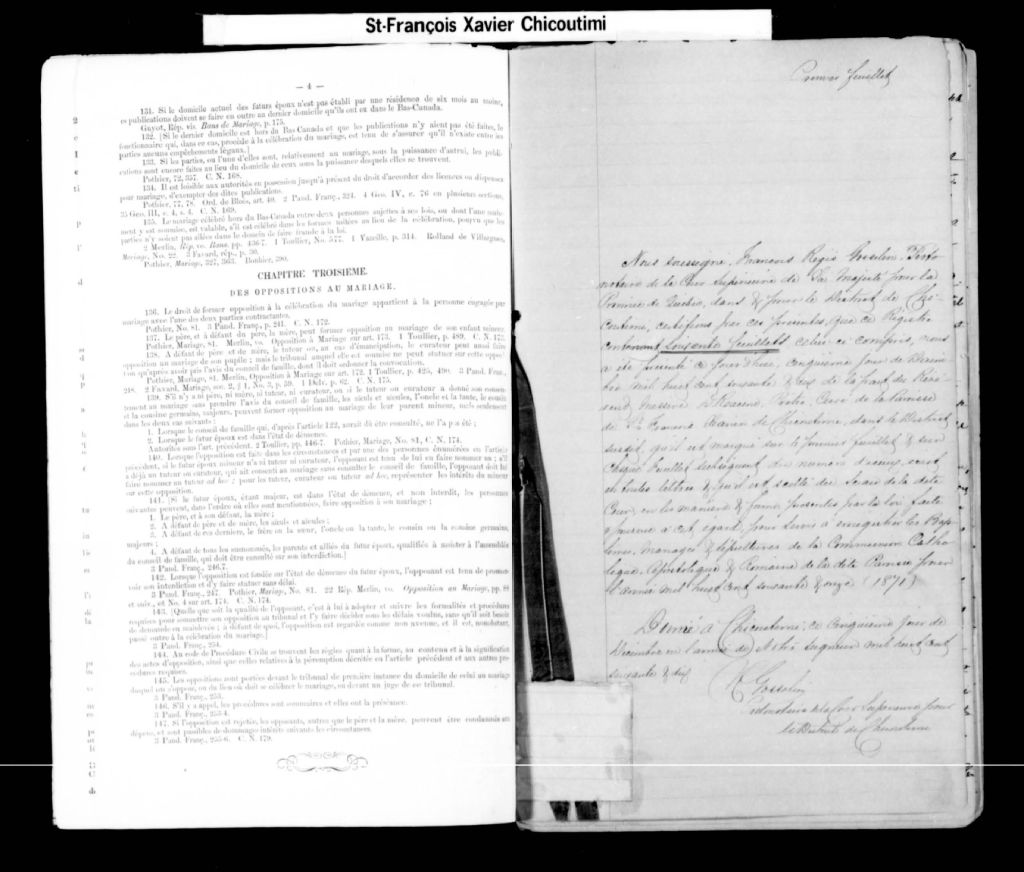 St-François Xavier Chicoutimi
— 4 —
131. Si le domicile actuel des futurs époux n'est pas établi par une résidence de six mois au moins,
les publications doivent se faire en outre au dernier domicile qu'ils ont eu dans le Bas-Canada.
Guyot, Rép. vis. Bans de Mariage, p. 175.
132. [Si le dernier domicile est hors du Bas Canada et que les publications n'y aient pas été faites, le
fonctionnaire qui, dans ce cas, procède à la célébration du mariage, est tenu de s'assurer qu'il n'existe entre les
parties aucuns empêchements légaux.]
133. Si les parties, ou l'une d'elles sont, relativement au mariage, sous la puissance d'autrui, les publi-
cations sont encore faites au lieu du domicile de ceux sous la puissance desquels elles se trouvent.
Pothier, 72, 357. C. N. 168.
134. Il est loisible aux autorités en possession jusqu'à présent du droit d'accorder des licences ou dispenses
pour mariage, d'exempter des dites publications.
Pothier, 77, 78. Ord. de Blois, art. 40. 2 Pand. Franç., 324. 4 Geo. IV, c. 76 en plusieurs sections,
35 Geo. III, c. 4, s. 4. C. N. 169.
135. Le mariage célébré hors du Bas-Canada entre deux personnes sujettes à ses lois, ou dont l'une seule-
ment y est soumise, est valable, s'il est célébré dans les formes usitées au lieu de la célébration, pourvu que les
parties n'y soient pas allées dans le dessein de faire fraude à la loi.
2 Merlin, Rép. vo. Bans, pp. 436-7. 1 Toullier, No. 577. 1 Vazeille, p. 314. Rolland de Villargues,
Mariage, No. 22. 3 Favard, rép., p. 50.
Pothier, Mariage, 327, 363. Bouhier, 390.
CHAPITRE TROISIEME.
DES OPPOSITIONS AU MARIAGE.
136. Le droit de former opposition à la célébration du mariage appartient à la personne engagée par
mariage avec l'une des deux parties contractantes.
Pothier, No. 81. 3 Pand. Franç., p. 241. C. N. 172.
137. Le père, et à défaut du père, la mère, peut former opposition au mariage de son enfant mineur.
Pothier, Mariage, 81. Merlin, vo. Opposition à Mariage sur art. 173. 1 Toullier, p. 489. C. N. 173.
138. A défaut de père et de mère, le tuteur ou, au cas d'émancipation, le curateur peut aussi faire
opposition au mariage de son pupille; mais le tribunal auquel elle est soumise ne peut statuer sur cette oppo-
tion qu'après avoir pris l'avis du conseil de famille, dont il doit ordonner la convocation.
Pothier, Mariage, 81. Merlin, Opposition à Mariage sur art. 172. 1 Toullier, p. 425, 490. 3 Pand. Franç.,
248. 2 Favard, Mariage, sec. 2, § 1, No. 3, p. 59. 1 Delv. p. 62. C. N. 175.
139. S'il n'y a ni père, ni mère, ni tuteur, ni curateur, ou si le tuteur ou curateur a donné son consen-
tement au mariage sans prendre l'avis du conseil de famille, les aïeuls et aïeules, l'oncle et la tante, le cousin
et la cousine germains, majeurs, peuvent former opposition au mariage de leur parent mineur, mais seulement
dans les deux cas suivants:
1. Lorsque le conseil de famille qui, d'après l'article 122, aurait dû être consulté, ne l'a pas été;
2. Lorsque le futur époux est dans l'état de démence.
Autorités sous l'art. précédent. 2 Toullier, pp. 446-7. Pothier, Mariage, No. 81, C. N. 174.
140. Lorsque l'opposition est faite dans les circonstances et par une des personnes énumérées en l'article
précédent, si le futur époux mineur n'a ni tuteur ni curateur, l'opposant est tenu de lui en faire nommer un; s'il
a déjà un tuteur ou curateur, qui ait consenti au mariage sans consulter le conseil de famille, l'opposant doit lui
faire nommer un tuteur ad hoc; pour les tuteur, curateur ou tuteur ad hoc, représenter les intérêts du mineur
sur cette opposition.
141. [Si le futur époux, étant majeur, est dans l'état de démence, et non interdit, les personnes
suivantes peuvent, dans l'ordre où elles sont mentionnées, faire opposition à son mariage;
1. Le père, et à son défaut, la mère;
2. A défaut de père et de mère, les aïeuls et aïeules;
3. A défaut de ces derniers, le frère ou la sœur, l'oncle ou la tante, le cousin ou la cousine germains,
majeurs;
4. A défaut de tous les susnommés, les parents et alliés du futur époux, qualifiés à assister à l'assemblée
du conseil de famille, qui doit être consulté sur son interdiction.]
3 Pand. Franç., 246-7.
142. Lorsque l'opposition est fondée sur l'état de démence du futur époux, l'opposant est tenu de promou-
voir son interdiction et d'y faire statuer sans délai.
3 Pand. Franç., 247. Pothier, Mariage, No. 81. 22 Rép. Merlin, vo. Opposition au Mariage, pp. 88
et suiv., et No. 4 sur art. 174. C. N. 174.
143. [Quelle que soit la qualité de l'opposant, c'est à lui à adopter et suivre les formalités et procédures
requises pour soumettre son opposition au tribunal et l'y faire décider sous les délais voulus, sans qu'il soit besoin
de demande en mainlevée; à défaut de quoi, l'opposition est regardée comme non avenue, et il est, nonobstant,
passé outre à la célébration du mariage.]
3 Pand. Franç., 254.
144. Au code de Procédure Civile se trouvent les règles quant à la forme, au contenu et à la signification
des actes d'opposition, ainsi que celles relatives à la péremption décrétée en l'article précédent et aux autres pro-
cédures requises.
145. Les oppositions sont portées devant le tribunal de première instance du domicile de celui au mariage
duquel on s'oppose, ou du lieu où doit se célébrer le mariage, ou devant un juge de ce tribunal.
3 Pand. Franç., 253.
146. S'il y a appel, les procédures sont sommaires et elles ont la préséance.
3 Pand. Franç., 253-4.
147. Si l'opposition est rejetée, les opposants, autres que le père et la mère, peuvent être condamnés aux
dépens, et sont passibles de dommages-intérêts suivants les circonstances.
3 Pand. Franç., 255-6. C. N. 179.
Premier feuillet
Nous soussigné, François Régis Gosselin, Proto
notaire de la Cour Supérieure de Sa Majesté pour la
Province de Québec, dans & pour le District de Chi-
coutimi, certifions par ces présentes, que ce Registre
contenant soixante feuillets celui-ci compris, nous
a été présenté ce jour d'hui, cinquième jour de Décem
bre mil huit cent soixante & dix de la part du Révé-
rend, Messire Racine, Prêtre, Curé de la Paroisse
de St François Xavier de Chicoutimi, dans le District
susdit, qu'il est marqué sur le premier feuillet & sur
chaque feuillet subséquent du numéro d'icelui, écrit
en toutes lettres & qu'il est scellé du Sceau de la dite
Cour, en la manière & forme prescrites par la loi faite
& pourvue à cet égard, pour servir à enregistrer les Bap
têmes, mariages & sépultures de la Communion Catho
lique, Apostolique & Romaine de la dite Paroisse pour
l'année mil huit cent soixante & onze (1871)
Donné à Chicoutimi, ce cinquième jour de
Décembre en l'année de Notre Seigneur mil huit cent
soixante & dix
Gosselin
Protonotaire de la Cour Supérieure pour
le District de Chicoutimi